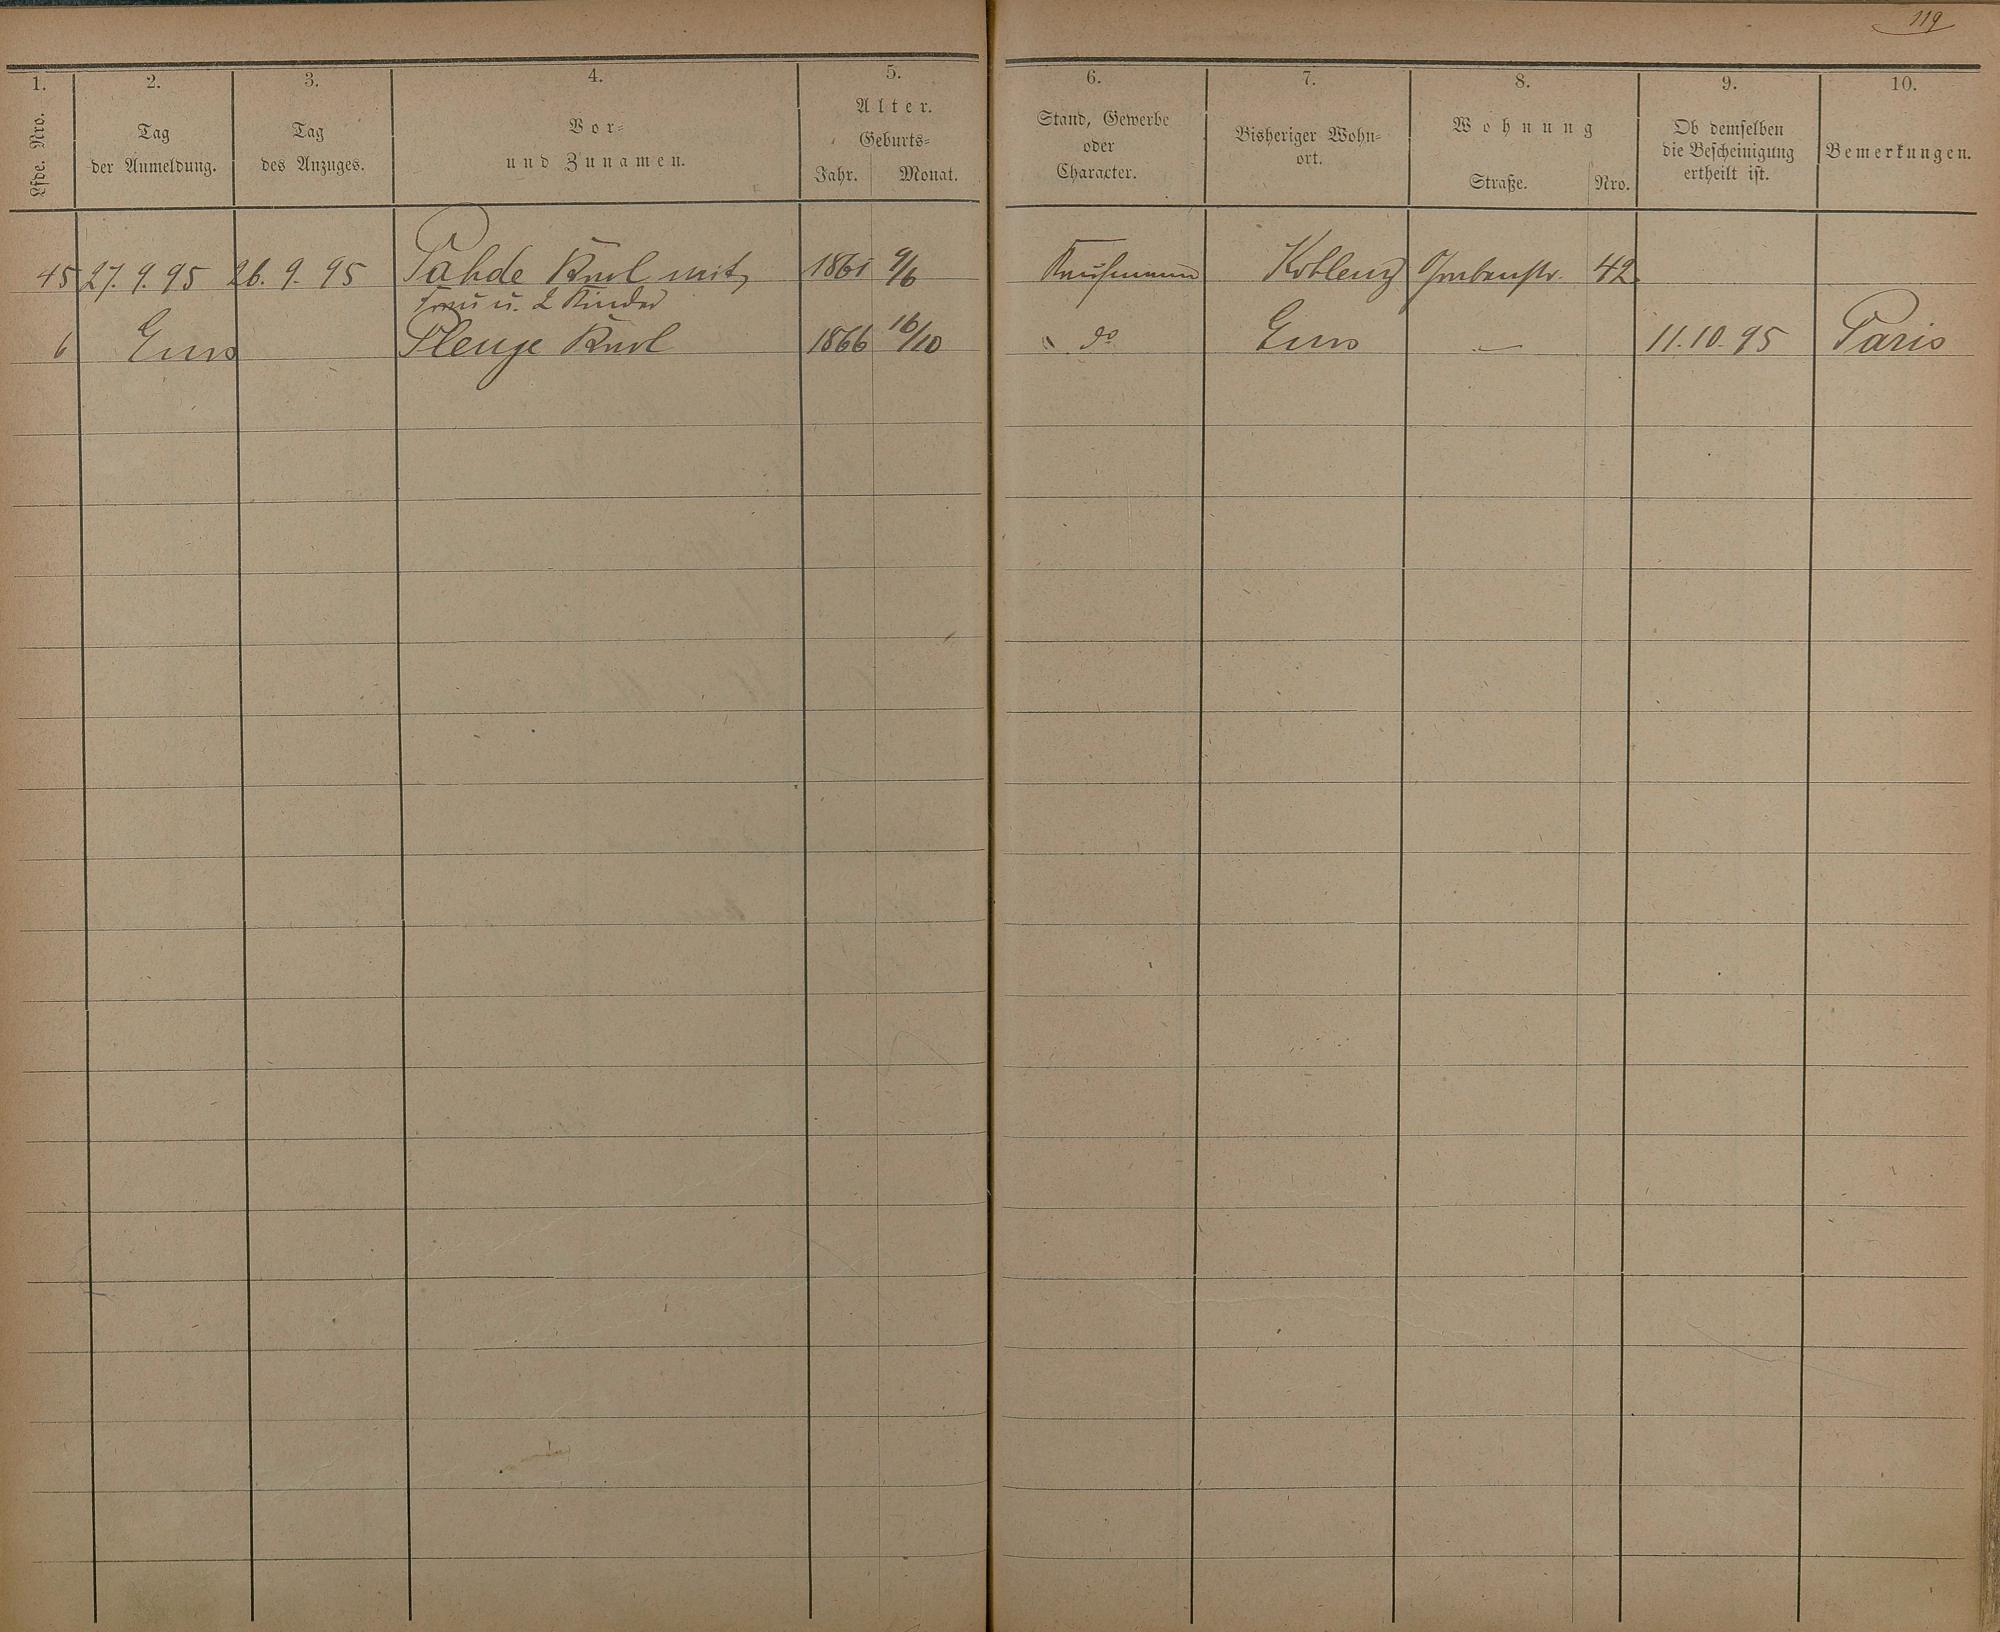 119
1. 2. 3. 4. 5. 6. 7. 8. 9. 10.
Lfde. Nro.
Tag
der Anmeldung.
Tag
des Anzuges.
Vor-
und Zunamen.
Alter.
Geburts-
Jahr. Monat.
Stand, Gewerbe
oder
Character.
Bisheriger Wohn-
ort.
Wohnung
Straße. Nro.
Ob demselben
die Bescheinigung
ertheilt ist.
Bemerkungen.
45 27. 9. 95 26. 9. 95 Pahde Karl mit 1861 9/6 Kaufmann Koblenz Grabenstr. 42
Frau u. 2 Kinder
6 Ems Plenge Karl 1866 16/10 do Ems — 11. 10. 95 Paris